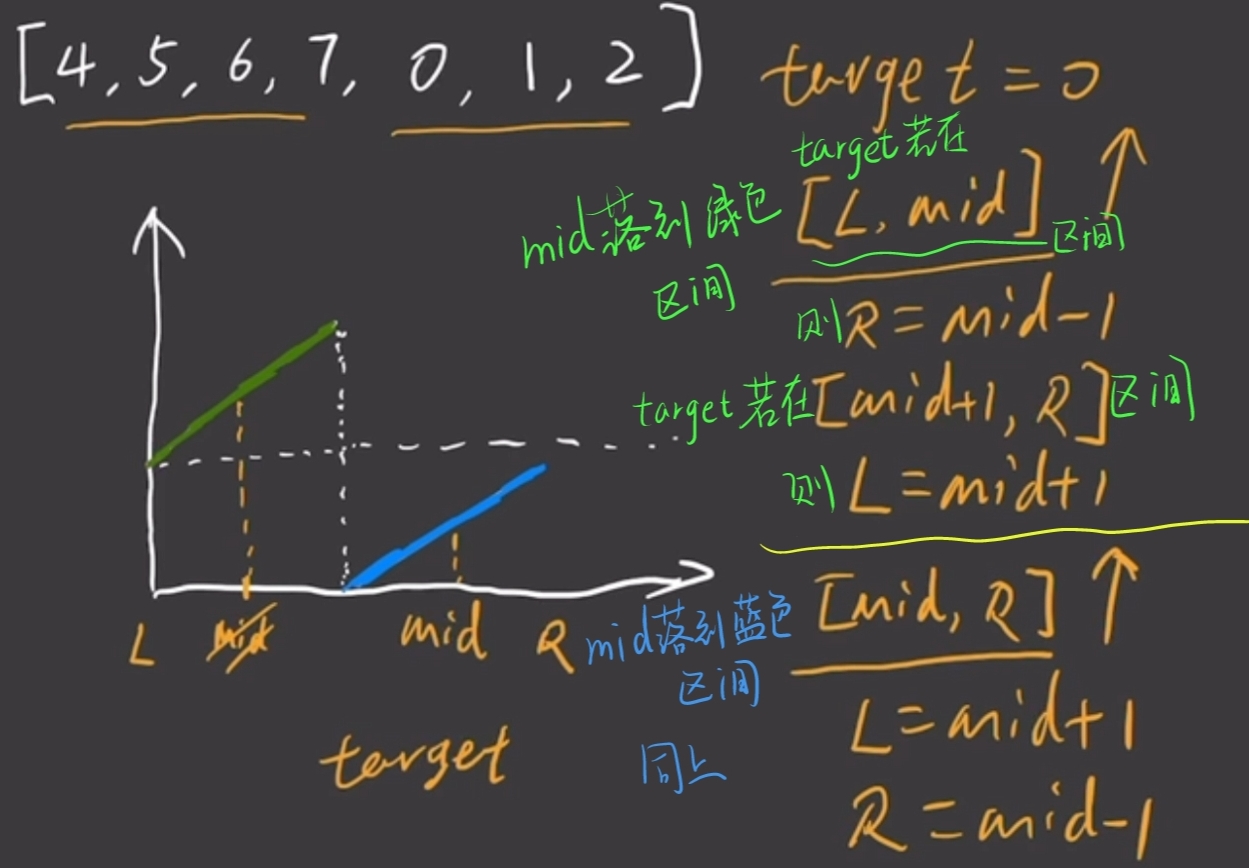 [4, 5, 6, 7, 0, 1, 2]
target = 0
target若在
[L, mid] 区间
mid落到绿色
区间
则R=mid-1
target若在[mid+1, R]区间
则L=mid+1
L mid mid R
mid落到蓝色
区间
[mid, R]
L=mid+1
同上
R=mid-1
target